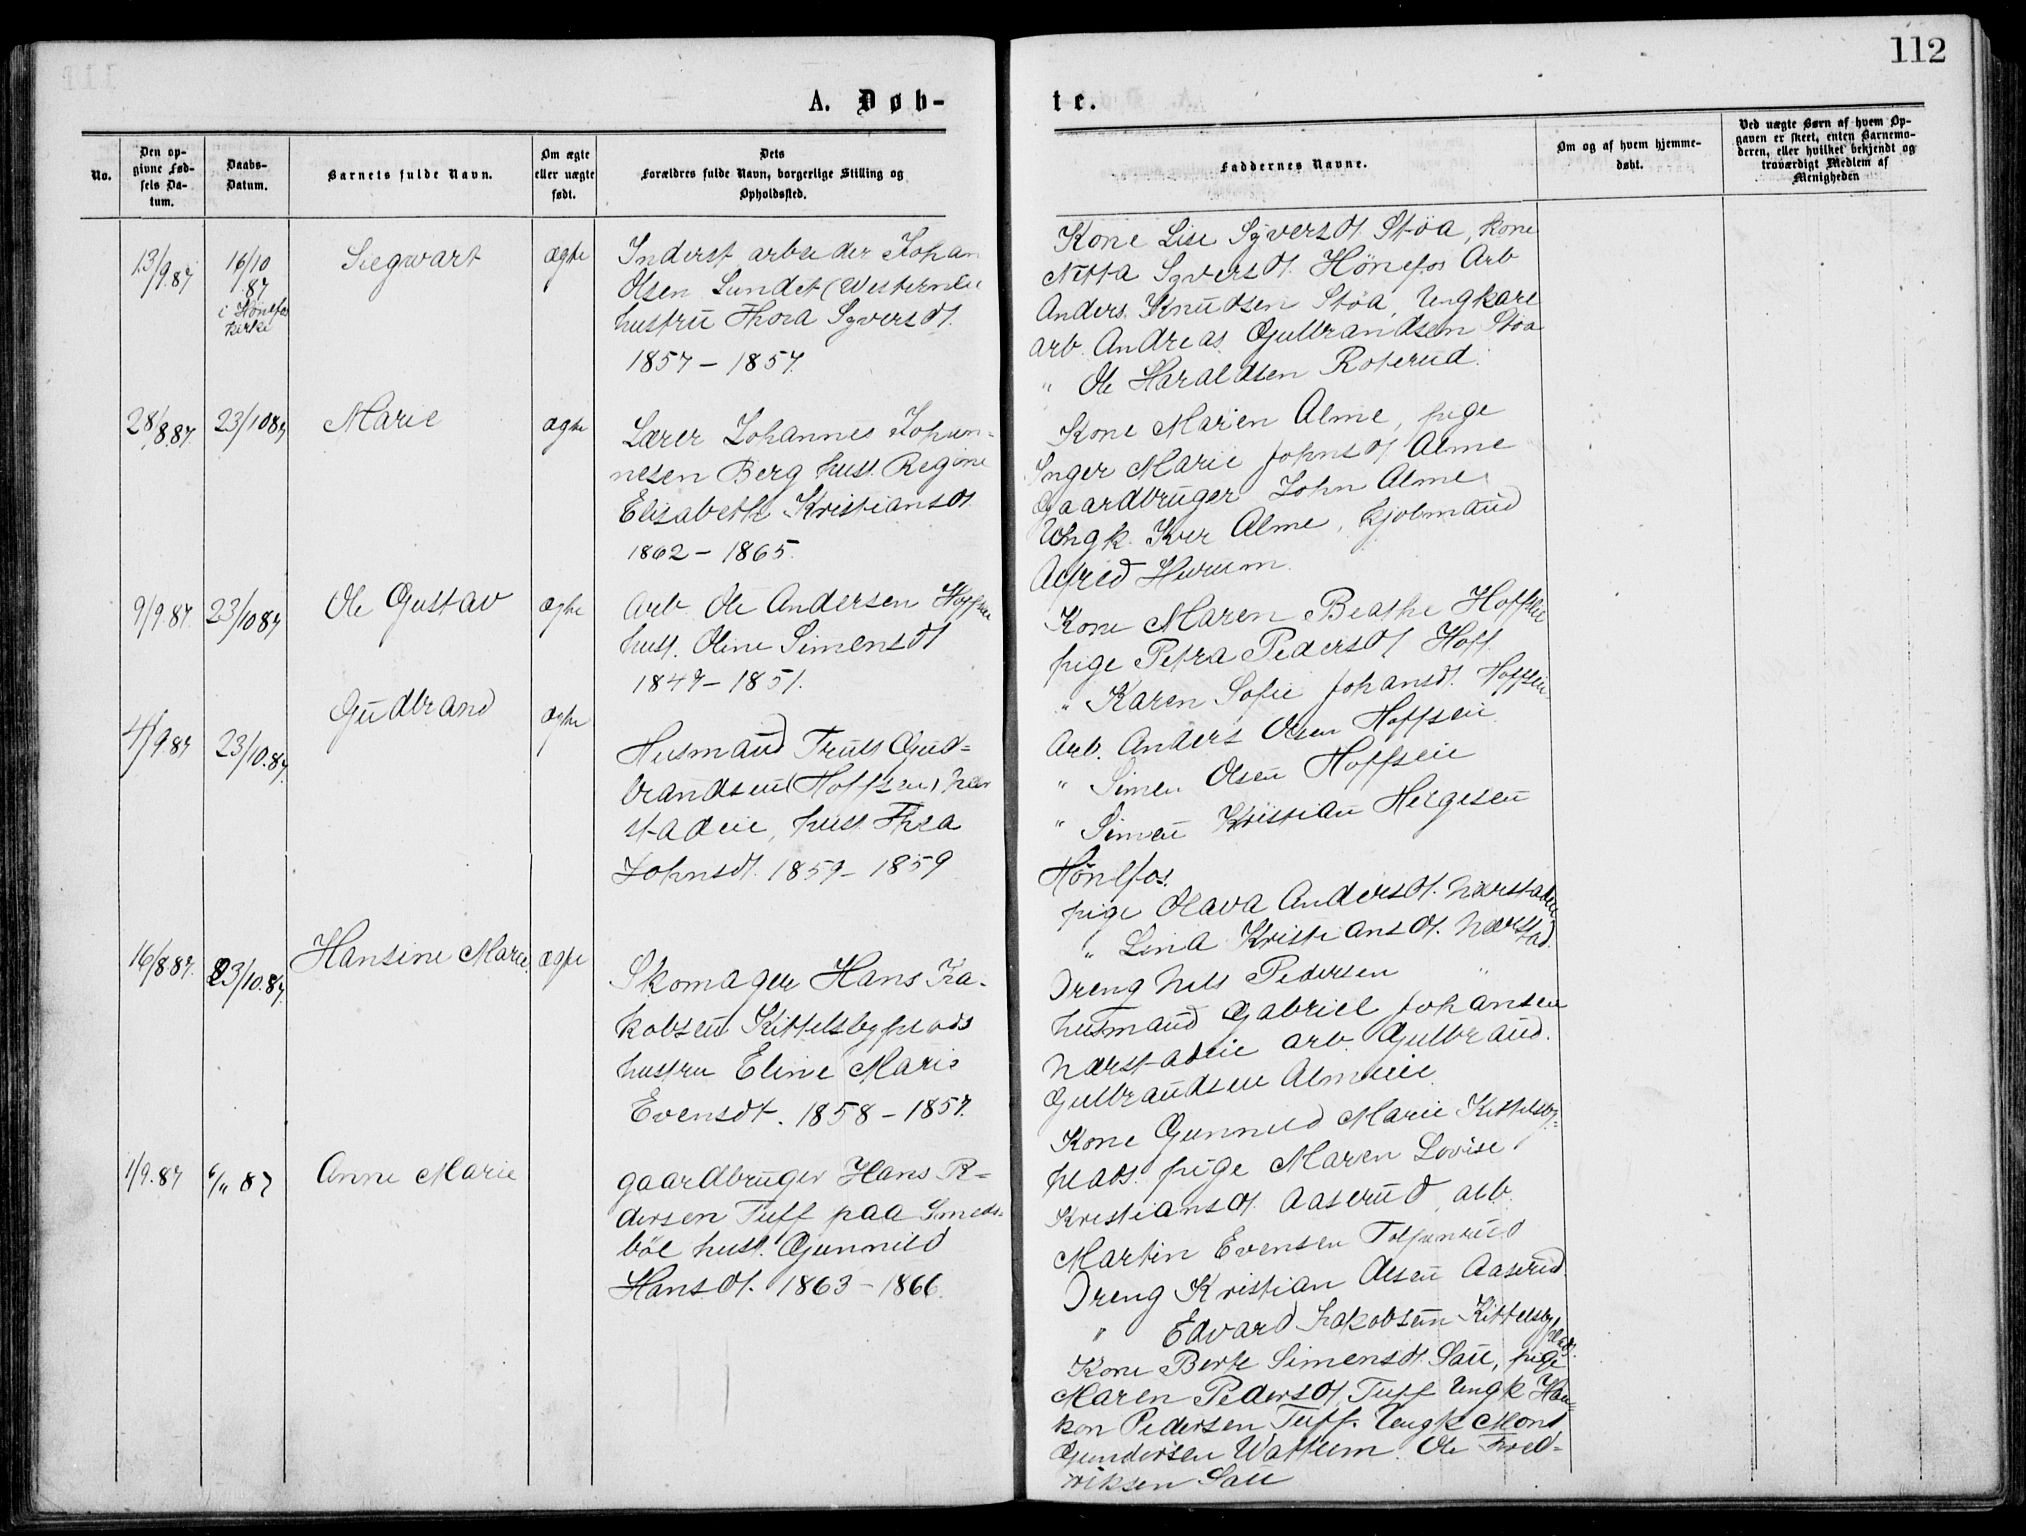 112
A. Døb-
te.
No.
Den op-
givne Fød-
sels Da-
tum.
Daabs-
Datum.
Barnets fulde Navn.
Om ægte
eller uægte
født.
Dets
Forældres fulde Navn, borgerlige Stilling og
Opholdssted.
Faddernes Navne.
Om og af hvem hjemme-
døbt.
Ved uægte Børn af hvem Op-
gaven er skeet, enten Barnemo-
deren, eller hvilket bekjendt og
troværdigt Medlem af
Menigheden
13/9.87
16/10
87
i Hønefos
Kirke
Siegwart
ægte
Inderst arbeider Johan
Olsen Lundet (Westernlie
hustru Thora Syversdt.
1857 – 1857.
Kone Lise Syversdt. Støa, kone
Netta Syversdt. Hønefos Arb
Anders Knudsen Støa, Ungkarl
arb. Andreas Gulbrandsen Støa
" Ole Haraldsen Roterud.
28/8.87.
23/10 87
Marie
ægte
Lærer Johannes Johan-
nesen Berg hust. Regine
Elisabeth Kristiansdt.
1862 – 1865.
Kone Maren Alme, pige
Inger Marie Johnsdt Alme
Gaardbruger John Alme
Ungk. Iver Alme, Kjøbmand
Alfred Hurum
9/9.87.
23/10 87
Ole Gustav
ægte
Arb. Ole Andersen Hoffseie
hust. Oline Simensdt
1847 – 1851.
Kone Maren Beathe Hoffseie
pige Petra Pedersdt Hoff.
" Karen Sofie Johansdt. Hoffseie
Arb. Anders Olsen Hoffseie
" Simen Olsen Hoffseie
" Simen Kristian Helgesen
Hønefos.
4/9 87
23/10.87.
Gudbrand
ægte
Husmand Truls Gud-
brandsen (Hoffseie) Nær-
stadeie, hust. Thea
Johnsdt. 1859 – 1859
pige Olava Andersdt. Nærstadeie
" Lina Kristiansdt. Nærstad.
Dreng Nils Pedersen "
husmand Gabriel Johansen
Nærstadeie arb. Gulbrand.
Gulbrandsen Almeeie
16/8.87.
23/10.87.
Hansine Marie
ægte
Skomager Hans Ja-
kobsen Kittelsbyplads
hustru Eline Marie
Evensdt. 1858 – 1857.
Kone Gunnild Marie Kittelsby-
plads. pige Maren Lovise
Kristiansdt. Aaserud, arb.
Martin Evensen
Dreng Kristian Olsen Aaserud.
" Edvard Jakobsen Kittelsby
plads.
1/9.87
6/11 87
Anne Marie
gaardbruger Hans P-
dersen Tuff paa Smeds-
bøl hust. Gunnild
Hansdt. 1863 – 1866.
Kone Berte Simensdt Sau, pige
Maren Pedersdt Tuff Ungk Haa-
kon Pedersen Tuff. Ungk Mons
Gundersen Wattum. Ole Fred-
riksen Sau